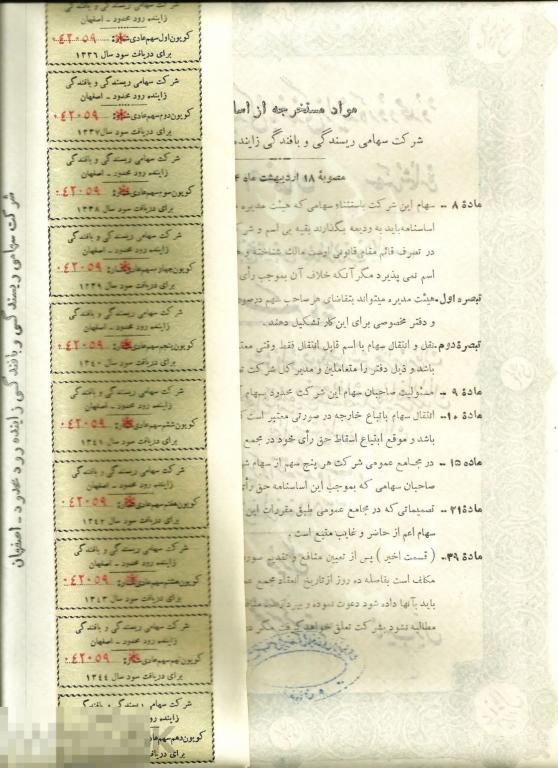 شرکت سهامی ریسندگی و بافندگی
زاینده رود محدود - اصفهان
کوپون اول سهم عادی شماره: ۰۴۲۰۵۹
برای دریافت سود سال ۱۳۳۶
شرکت سهامی ریسندگی و بافندگی
زاینده رود محدود - اصفهان
کوپون دوم سهم عادی شماره: ۰۴۲۰۵۹
برای دریافت سود سال ۱۳۳۷
شرکت سهامی ریسندگی و بافندگی
زاینده رود محدود - اصفهان
کوپون سوم سهم عادی شماره: ۰۴۲۰۵۹
برای دریافت سود سال ۱۳۳۸
شرکت سهامی ریسندگی و بافندگی
زاینده رود محدود - اصفهان
کوپون چهارم سهم عادی شماره: ۰۴۲۰۵۹
برای دریافت سود سال ۱۳۳۹
شرکت سهامی ریسندگی و بافندگی
زاینده رود محدود - اصفهان
کوپون پنجم سهم عادی شماره: ۰۴۲۰۵۹
برای دریافت سود سال ۱۳۴۰
شرکت سهامی ریسندگی و بافندگی
زاینده رود محدود - اصفهان
کوپون ششم سهم عادی شماره: ۰۴۲۰۵۹
برای دریافت سود سال ۱۳۴۱
شرکت سهامی ریسندگی و بافندگی
زاینده رود محدود - اصفهان
کوپون هفتم سهم عادی شماره: ۰۴۲۰۵۹
برای دریافت سود سال ۱۳۴۲
شرکت سهامی ریسندگی و بافندگی
زاینده رود محدود - اصفهان
کوپون هشتم سهم عادی شماره: ۰۴۲۰۵۹
برای دریافت سود سال ۱۳۴۳
شرکت سهامی ریسندگی و بافندگی
زاینده رود محدود - اصفهان
کوپون نهم سهم عادی شماره: ۰۴۲۰۵۹
برای دریافت سود سال ۱۳۴۴
شرکت سهامی ریسندگی و بافندگی
زاینده رو
کوپون دهم سهم عا
برای دریاف
شرکت سهامی ریسندگی و بافندگی زاینده رود محدود - اصفهان
مواد مستخرجه از اسا
شرکت سهامی ریسندگی و بافندگی زاینده
مصوبهٔ ۱۸ اردیبهشت ماه
مادهٔ ۸ - سهام این شرکت باستثناء سهامی که هیئت مدیره
اساسنامه باید به ودیعه بگذارند بقیه بی اسم و
در تصرف قائم مقام قانونی اوست مالک شناخته و
اسم نمی پذیرد مگر آنکه خلاف آن بموجب رأی
تبصره اول- هیئت مدیره میتواند بتقاضای هر صاحب سهم
و دفتر مخصوصی برای این کار تشکیل دهند.
تبصره دوم- نقل و انتقال سهام با اسم قابل انتقال فقط وقتی معت
باشد و ذیل دفتر را متعاملین و مدیر کل شرکت
مادهٔ ۹ - مسئولیت صاحبان سهام این شرکت محدود بسهام
مادهٔ ۱۰- انتقال سهام باتباع خارجه در صورتی معتبر است
باشد و موقع ابتیاع اسقاط حق رأی خود در مجمع
ماده ۱۵ - در مجامع عمومی شرکت هر پنج سهم از سهام
صاحبان سهامی که بموجب این اساسنامه حق رأ
مادهٔ ۲۱- تصمیماتی که در مجامع عمومی طبق مقررات این
سهام اعم از حاضر و غایب متبع است.
مادهٔ ۳۹- ( قسمت اخیر ) پس از تعیین منافع و
مکلف است بفاصله ده روز از تاریخ انعقاد مجمع
باید بآنها داده شود دعوت نموده و بپردازند
مطالبه نشود بشرکت تعلق خواهد گرفت مگر